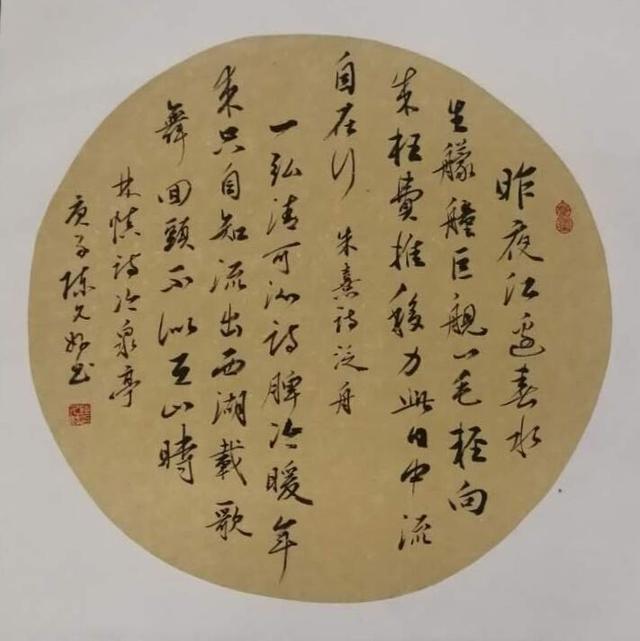 昨夜江邊春水
生艨艟巨舰一毛輕向
来枉費推移力此日中流
自在行 朱熹詩泛舟
一泓清可沁詩脾冷暖年
来只自知流出西湖載歌
舞回頭不似在山時
林慎詩冷泉亭
庚子陈书